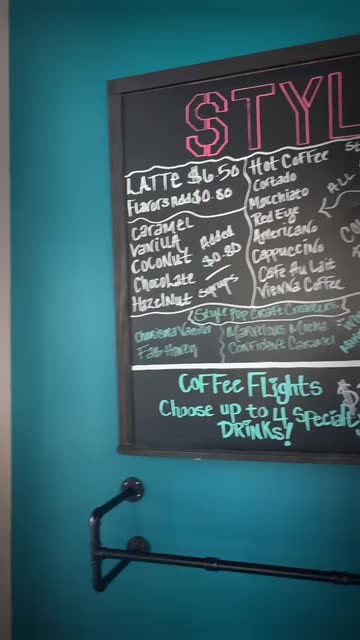 STYL
LATTE $6.50
Flavors Add $0.80
CARAMEL
Vanilla
Coconut
Chocolate
Hazelnut
Added
$0.80
Syrups
Hot Coffee
Cortado
Macchiato
Red Eye
Americano
Cappuccino
Cafe Au Lait
Vienna Coffee
St
ALL
CO
Style Pop Craft Creamers
Charisma Vanilla
Fab Honey
Marvelous Mocha
Confident Caramel
Coffee Flights $
Choose up to 4 Specialty
DRINKS!